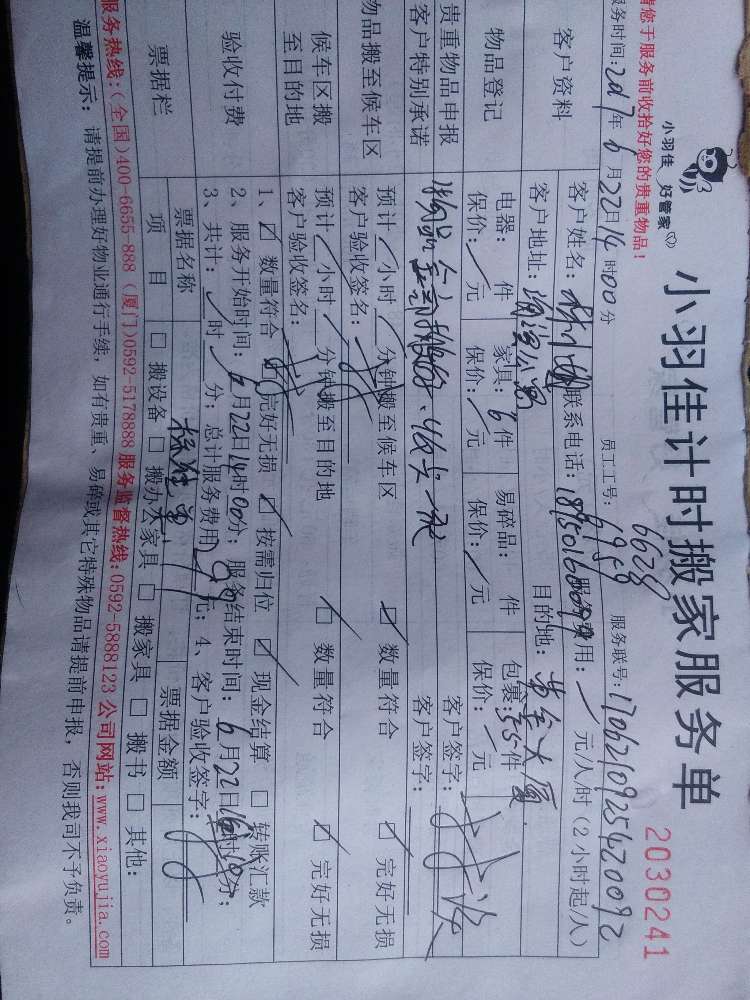 小羽佳 好管家
小羽佳计时搬家服务单
2030241
请您于服务前收拾好您的贵重物品！
员工工号： 6628 6958
服务联号：1706210925420092
服务时间：2017年6月22日14时00分
客户资料
客户姓名： 联系电话： 服务费用： 元/人/时（2小时起/人）
客户地址： 目的地： 大厦
物品登记
电器： 件 家具：6件 易碎品： 件 包裹：55件
保价： 元 保价： 元 保价： 元 保价： 元
贵重物品申报 客户签字：
客户特别承诺 物品全部 客户签字：
物品搬至候车区
预计 小时 分钟搬至候车区 ☑ 数量符合 ☑ 完好无损
客户验收签名：
候车区搬至目的地
预计 小时 分钟搬至目的地 ☑ 数量符合 ☑ 完好无损
客户验收签名：
验收付费
1、☑ 数量符合 ☑ 完好无损 ☑ 按需归位 ☑ 现金结算 □ 转账汇款
2、服务开始时间：6月22日14时00分；服务结束时间：6月22日16时10分；
3、共计： 时 分；总计服务费用 元；4、客户验收签字：
票据栏
票据名称 票据金额
项目 □ 搬设备 □ 搬办公家具 □ 搬家具 □ 搬书 □ 其他：
服务热线：(全国)400-6655-888 (厦门)0592-5178888 服务监督热线:0592-5888123 公司网站:www.xiaoyujia.com
温馨提示： 请提前办理好物业通行手续，如有贵重、易碎或其它特殊物品请提前申报，否则我司不予负责。